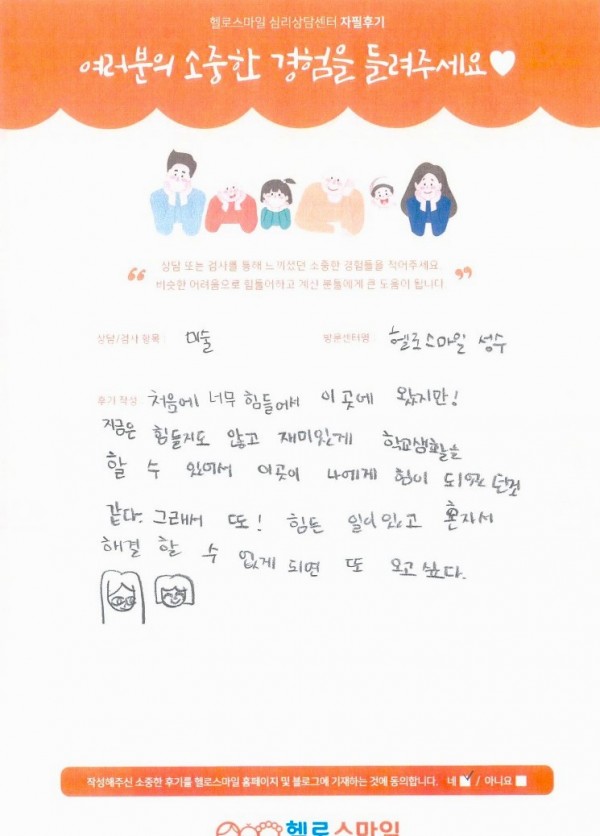 헬로스마일 심리상담센터 자필후기
여러분의 소중한 경험을 들려주세요♥
“ 상담 또는 검사를 통해 느끼셨던 소중한 경험들을 적어주세요.
비슷한 어려움으로 힘들어하고 계신 분들에게 큰 도움이 됩니다 ”
상담/검사 항목 : 미술
방문센터명 : 헬로스마일 성수
후기 작성 : 처음에 너무 힘들어서 이 곳에 왔지만!
지금은 힘들지도 않고 재미있게 학교생활을
할 수 있어서 이곳이 나에게 힘이 되었던것
같다. 그래서 또! 힘든 일이 있고 혼자서
해결 할 수 없게 되면 또 오고 싶다.
작성해주신 소중한 후기를 헬로스마일 홈페이지 및 블로그에 기재하는 것에 동의합니다. 네 ☑ / 아니요 ☐
헬로스마일